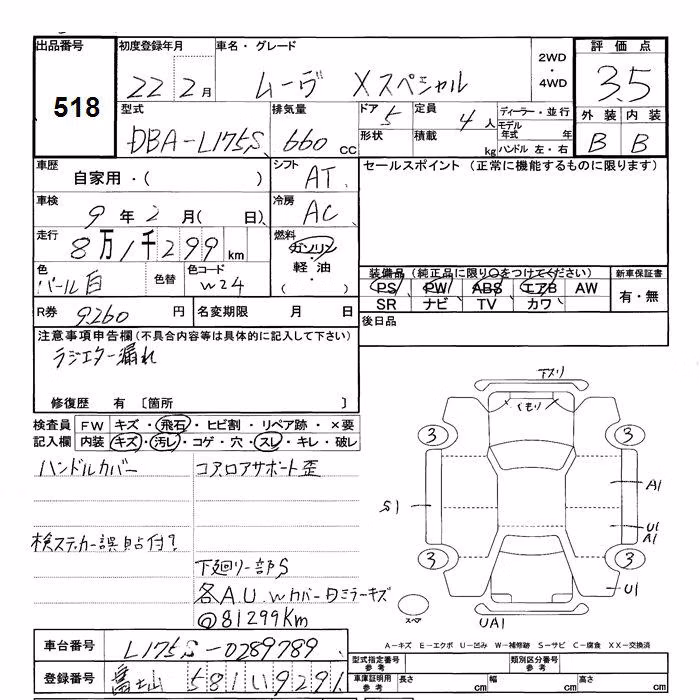 出品番号 初度登録年月 車名・グレード 2WD・4WD 評価点
518 22 2月 ムーヴ Xスペシャル 3.5
型式 排気量 ドア 5 定員 4人 ディーラー・並行 外装 内装
DBA-L175S 660 CC 形状 積載 kg モデル年式 年 ハンドル 左・右 B B
車歴 自家用・( ) シフト AT セールスポイント (正常に機能するものに限ります)
車検 9年2月( 日) 冷房 AC
走行 8万1千299km 燃料 ガソリン・軽油・( )
色 パール白 色替 色コード W24 装備品 (純正品に限り○をつけてください) 新車保証書
PS PW ABS エアB AW 有・無
SR ナビ TV カワ
R券 9260円 名変期限 月 日 後日品
注意事項申告欄(不具合内容等は具体的に記入して下さい)
ラジエター漏れ
修復歴 有 〔箇所 〕
検査員 FW キズ・飛石・ヒビ割・リペア跡・×要
記入欄 内装 キズ・汚レ・コゲ・穴・スレ・キレ・破レ
ハンドルカバー コアロアサポート歪
検ステッカー誤貼付?
下廻り一部S
各A.U. Wカバー 日ミラーキズ
@81299Km
下スリ
くもり
3 3
A1
S1
U1
A1
3 3
U1
スペア
UA1
A-キズ E-エクボ U-凹み W-補修跡 S-サビ C-腐食 XX-交換済
車台番号 L175S-0289789 型式指定番号 参考 類別区分番号 参考
登録番号 富士山 581 い 9291 車庫証明用 参考 長さ cm 幅 cm 高さ cm